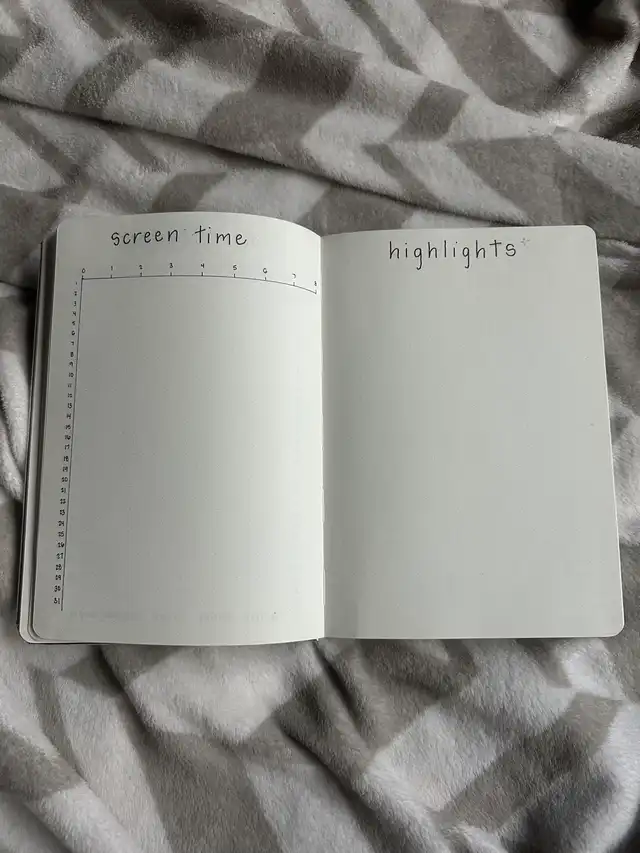 screen time
0 1 2 3 4 5 6 7 8
1
2
3
4
5
6
7
8
9
10
11
12
13
14
15
16
17
18
19
20
21
22
23
24
25
26
27
28
29
30
31
highlights